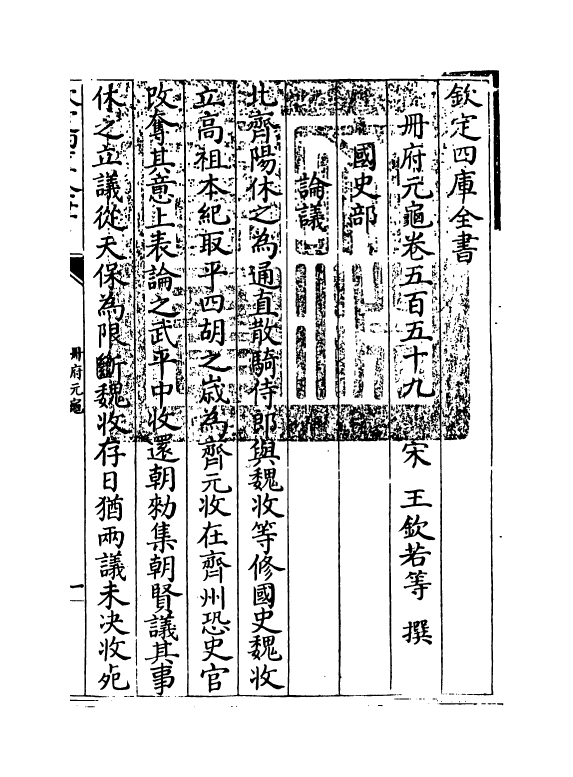 欽定四庫全書
冊府元龜卷五百五十九　宋　王欽若等　撰
國史部
論議
北齊陽休之為通直散騎侍郎與魏收等修國史魏收
立高祖本紀取平四胡之歲為齊元收在齊州恐史官
改奪其意上表論之武平中收還朝勑集朝賢議其事
休之立議從天保為限斷魏收存日猶兩議未决收死
冊府元龜
一